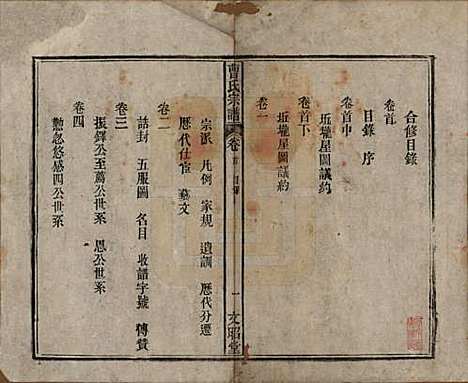 合修目錄
卷首
目錄 序
卷首中
坵壠星圖議約
卷首下
坵壠星圖議約
卷一
曹氏宗譜 卷首 目錄 一 文昭堂
宗派 凡例 家規 遺訓 歷代分遷
歷代仕宦 墓文
卷二
誥封 五服圖 名目 收譜字號 傳贊
卷三
振鐸公至萬公世系 恩公世系
卷四
懃忽悠感四公世系